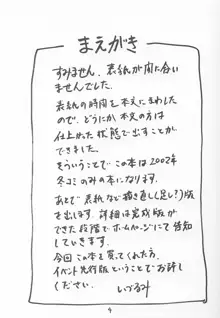 まえがき
すみません、表紙が間に合い
ませんでした。
表紙の時間を本文にまわした
ので、どうにか本文の方は
仕上れた状態で出すことが
できました。
そういうことでこの本は2002年
冬コミのみの本になります。
あとで表紙など描き直し(足し?)版
を出します。詳細は完成版が
できた段階でホームページにて告知
していきます。
今回この本を買ってくれた方、
イベント先行版ということでお許し
ください。
いづるみ
4